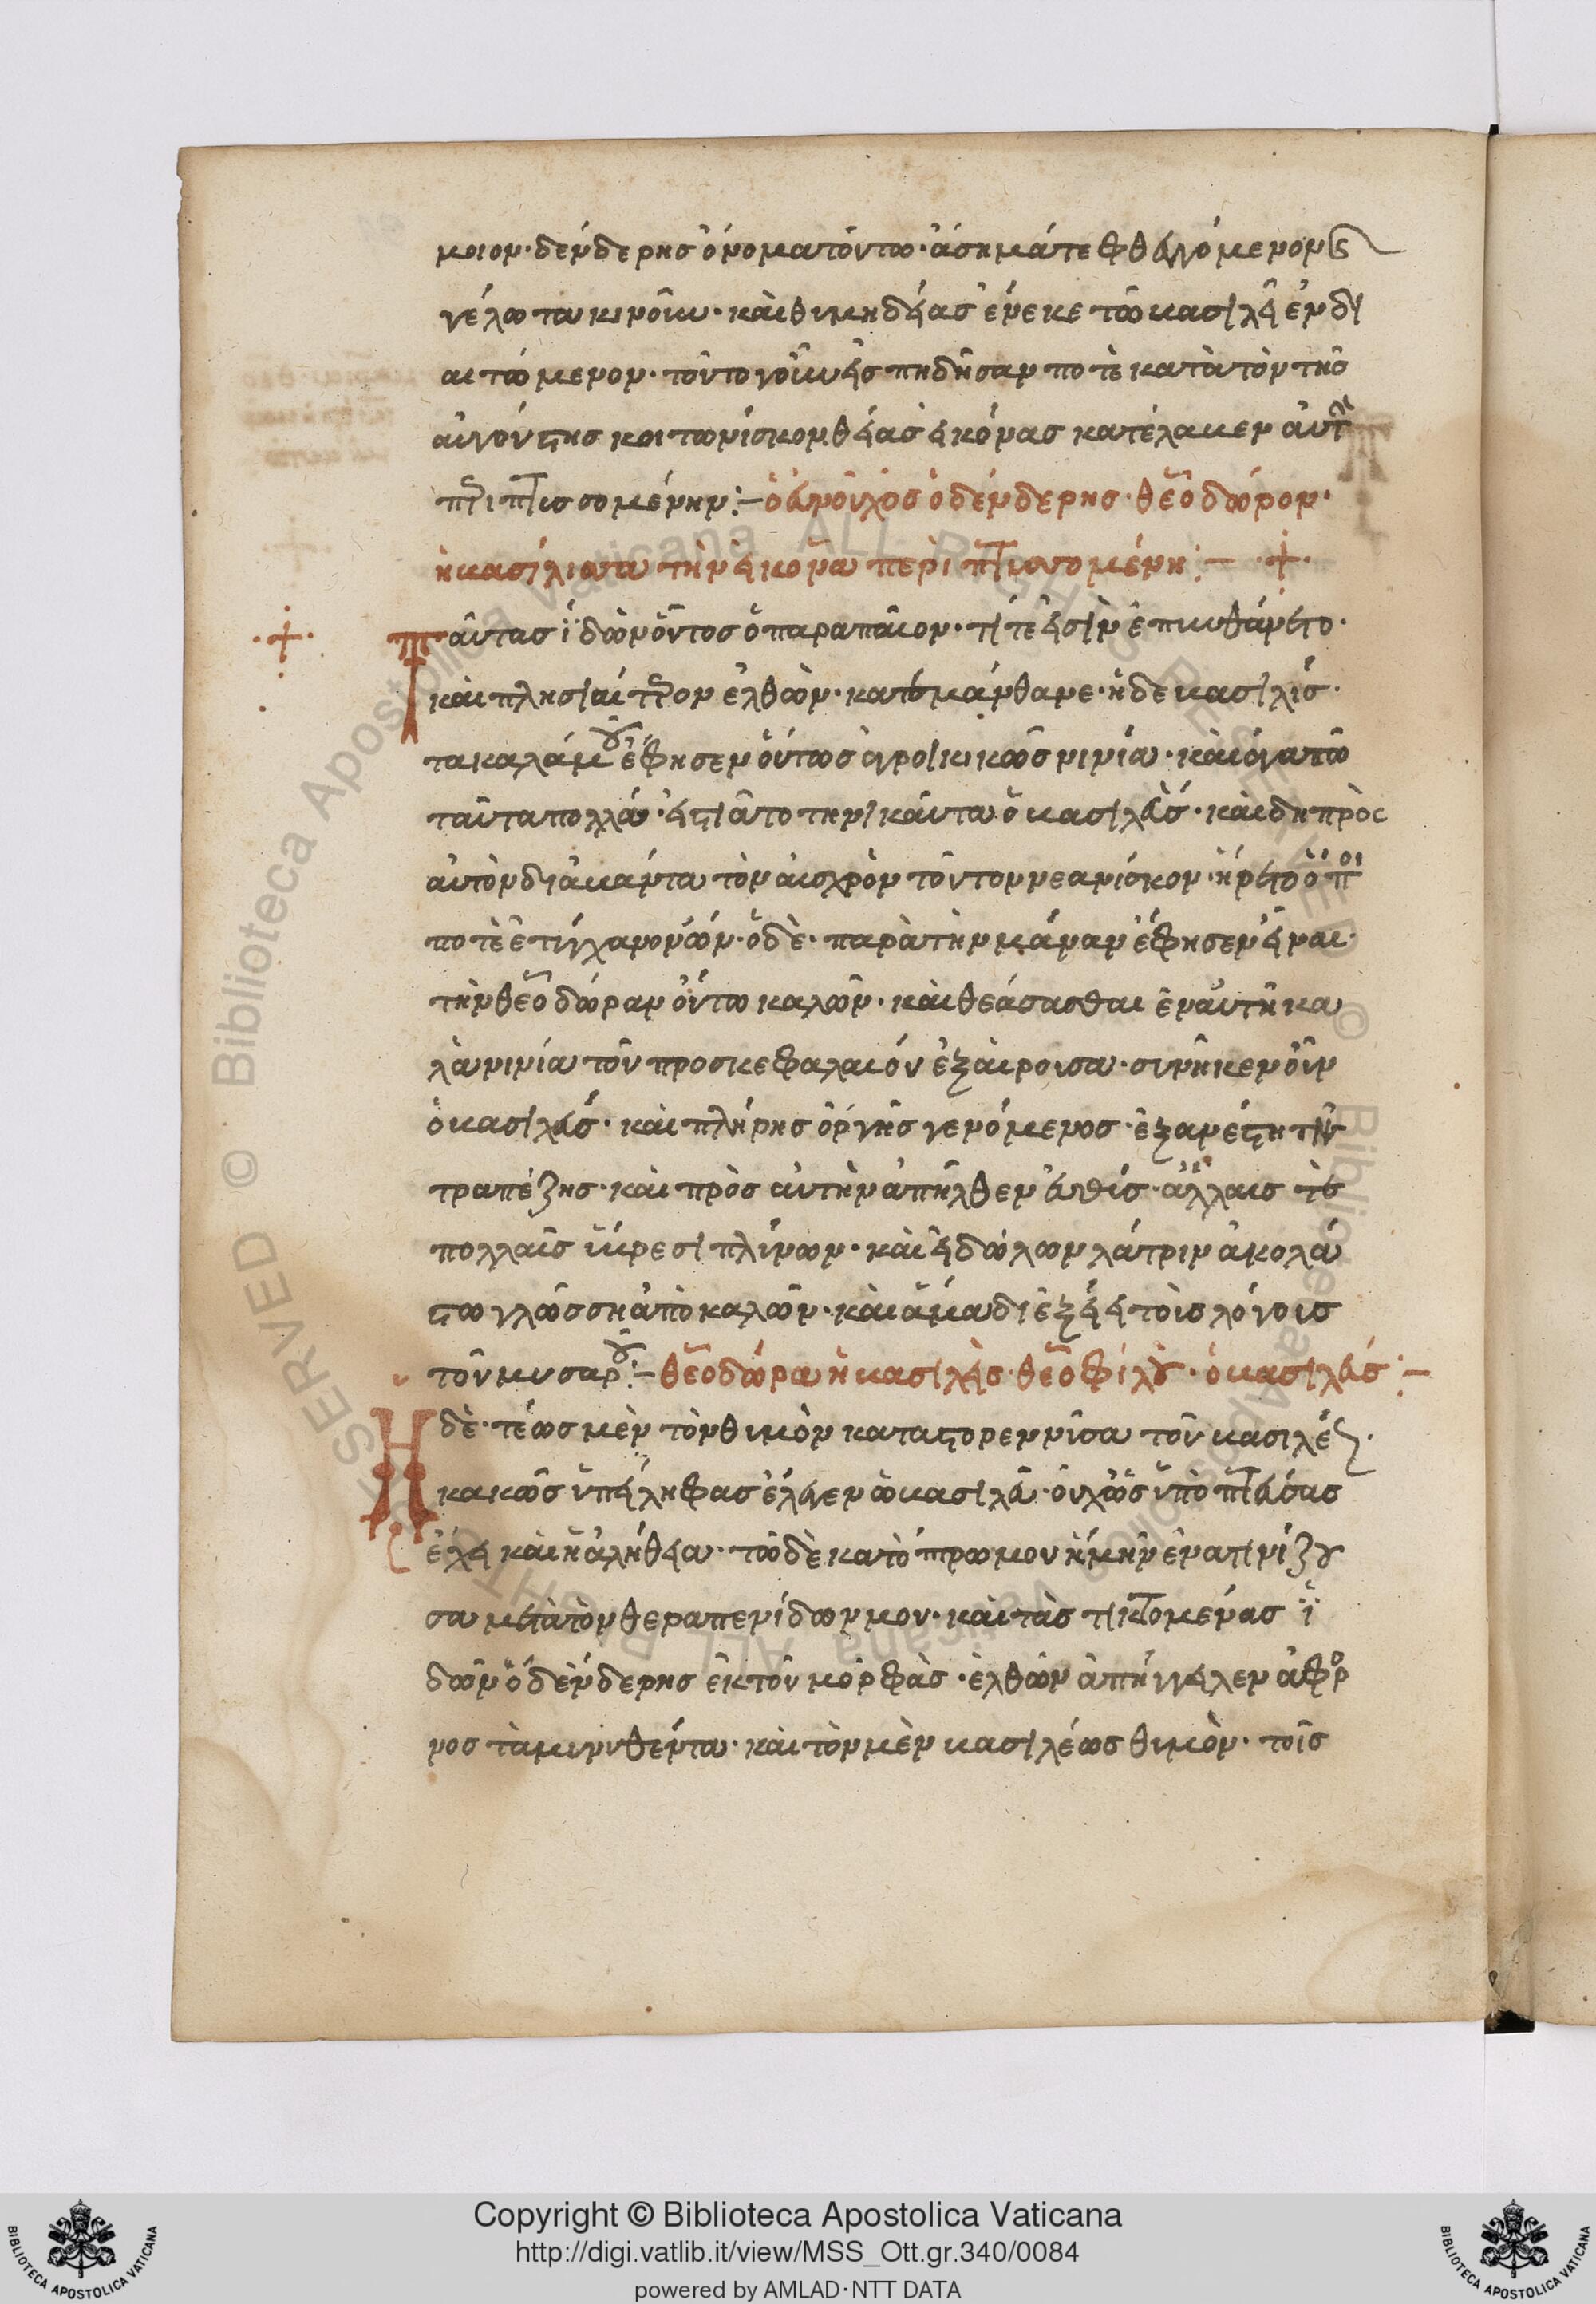 μοιον· δένδερης ὀνοματόντω· ἄσημάτε φθεγγόμενον (καὶ)
γέλωτα κινοῦν· καὶ θυμηδείας ἕνεκε τῶ βασιλεῖ ἐνδι
αιτώμενον· τοῦτο γοῦν εἰσπηδῆσάν ποτε κατὰ τὸν τῆς
αὐγούστης κοιτωνίσκον, θείας εἰκόνας κατέλαβεν αὐτὴν
περιπτυσσομένην:– ὁ εὐνοῦχος ὁ δένδερης· θεοδώρον·
ἡ βασίλισσα τὴν εἰκόνα περιπτυσσομένη:– ·+·
Ταύτας ἰδὼν οὗτος ὁ παραπαῖον· τί τε εἰσὶν ἐπυνθάνετο·
καὶ πλησιαίτερον ἐλθὼν· κατεμάνθανε· ἡ δὲ βασιλὶς·
τὰ καλά μου ἔφησεν οὕτως ἀγροικικῶς νινία· καὶ ἀγαπῶ
ταῦτα πολλά· εἱστιᾶτο τηνικαῦτα ὁ βασιλεὺς· καὶ δὴ πρὸς
αὐτὸν διαβάντα τὸν αἰσχρὸν τοῦτον νεανίσκον· ἤρετο ὅποι
ποτὲ ἐτύγχανον ὤν· ὁ δὲ· παρὰ τὴν μάναν ἔφησεν εἶναι·
τὴν θεοδώραν οὕτω καλῶν· καὶ θεάσασθαι ἐν αὐτῆ κα
λὰ νινία τοῦ προσκεφαλαιόυ ἐξαίρουσα· συνῆκεν οὖν
ὁ βασιλεὺς· καὶ πλήρης ὀργῆς γενόμενος· ἐξανέστη τῆς
τραπέζης· καὶ πρὸς αὐτὴν ἀπῆλθεν εὐθύς· ἄλλαις τὲ
πολλαῖς ὕβρεσι πλύνων· καὶ εἰδώλων λάτριν ἀκολά
στω γλώσση ἀποκαλῶν· καὶ ἅμα διεξήει τοῖς λόγοις
τοῦ μυσαροῦ:– θεοδώρα ἡ βασιλὶς· θεοφίλου· ὁ βασιλεύς:–
Ἡ δὲ· τέως μὲν τὸν θυμὸν καταστορεννῦσα τοῦ βασιλέως·
κακῶς ὑπείληφας ἔλεγεν ὦ βασιλεῦ· οὐχ ὡς ὑπόπτευσας
ἔχει καὶ ἡ ἀλήθεια· τῶ δὲ κατόπτρω μου ἤμην ἐνατενίζου
σα μετὰ τὸν θεραπενίδων μου· καὶ τὰς τικτομένας ἰ
δὼν ὁ δένδερης ἐκ τοῦ μορφὰς· ἐλθὼν ἀπήγγειλεν ἀφρό
νος τὰ μηνυθέντα· καὶ τὸν μὲν βασιλέως θυμὸν· τοῖς
Copyright © Biblioteca Apostolica Vaticana
http://digi.vatlib.it/view/MSS_Ott.gr.340/0084
powered by AMLAD·NTT DATA